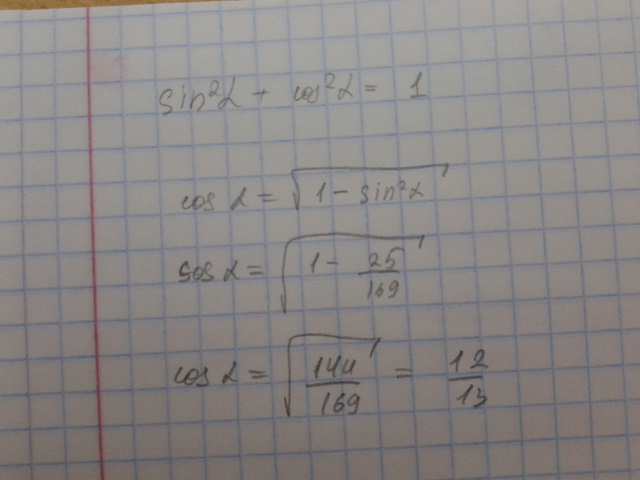 sin²α + cos²α = 1
cos α = √(1 − sin²α)
sos α = √(1 − 25/169)
cos α = √(144/169) = 12/13